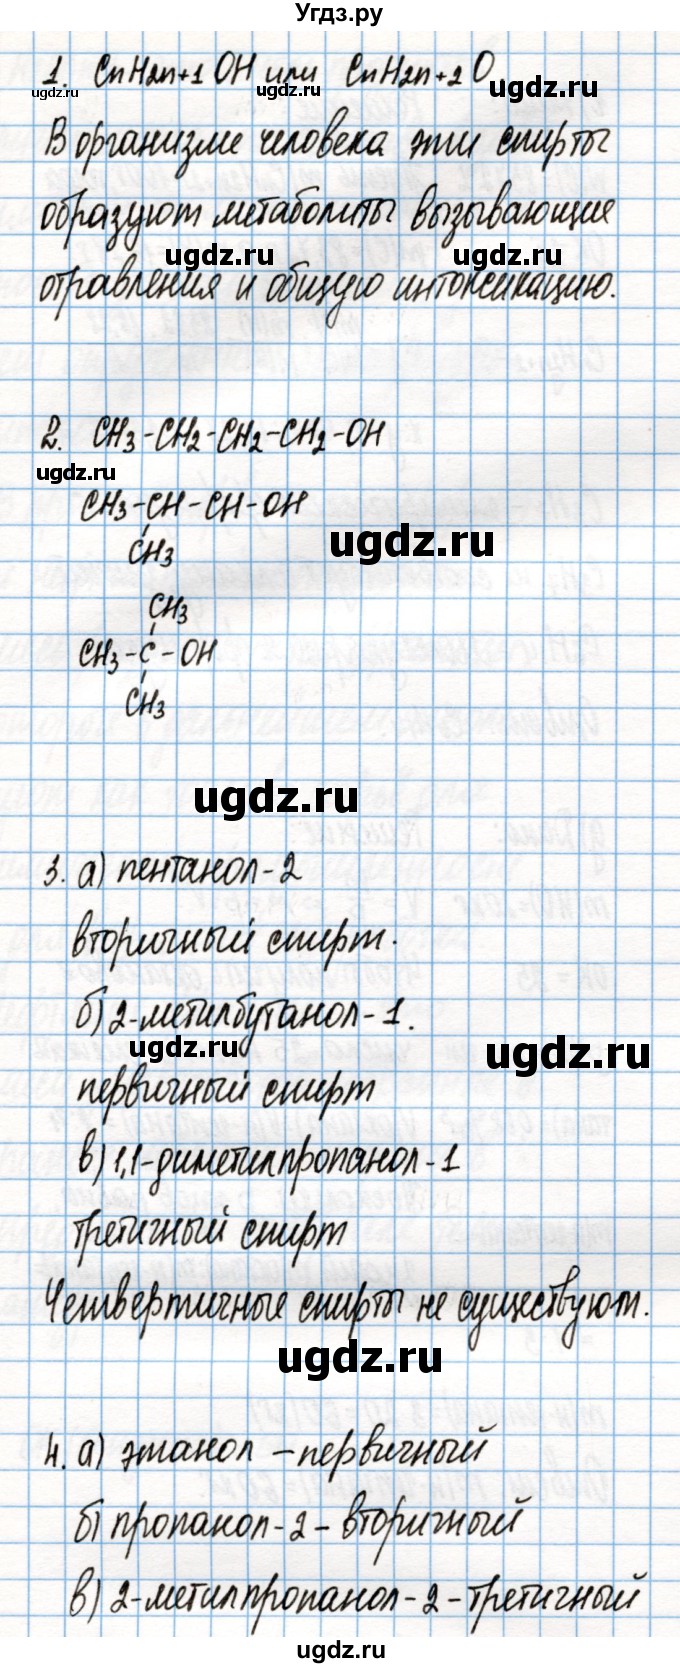 Угдз.ру
1. CnH2n+1 OH или CnH2n+2 O
ugdz.ru ugdz.ru ugdz.ru
В организме человека эти спирты
образуют метаболиты вызывающие
ugdz.ru ugdz.ru
отравления и общую интоксикацию.
2. CH3-CH2-CH2-CH2-OH
ugdz.ru
CH3-CH-CH-OH
ugdz.ru
CH3
CH3
CH3-C-OH
CH3
ugdz.ru
3. а) пентанол-2
вторичный спирт.
б) 2-метилбутанол-1.
ugdz.ru ugdz.ru
первичный спирт
в) 1,1-диметилпропанол-1
третичный спирт
Четвертичные спирты не существуют.
ugdz.ru
4. а) этанол – первичный
б) пропанол-2 – вторичный
в) 2-метилпропанол-2 – третичный
ugdz.ru